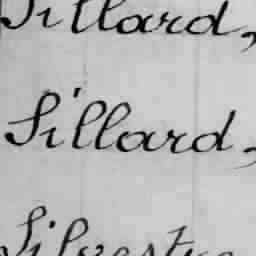 Sillard,
Sillard,
Silvestre